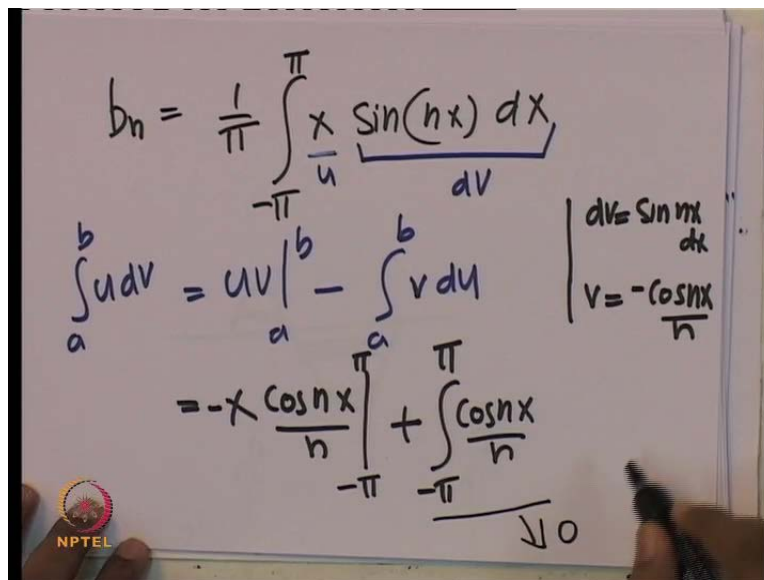 bn = 1/π ∫_{-π}^{π} x sin(nx) dx
u dv
∫_a^b u dv = uv |_a^b - ∫_a^b v du
dv = sin nx dx
v = -cos nx / n
= -x cos nx / n |_{-π}^{π} + ∫_{-π}^{π} cos nx / n
⇓ 0
NPTEL